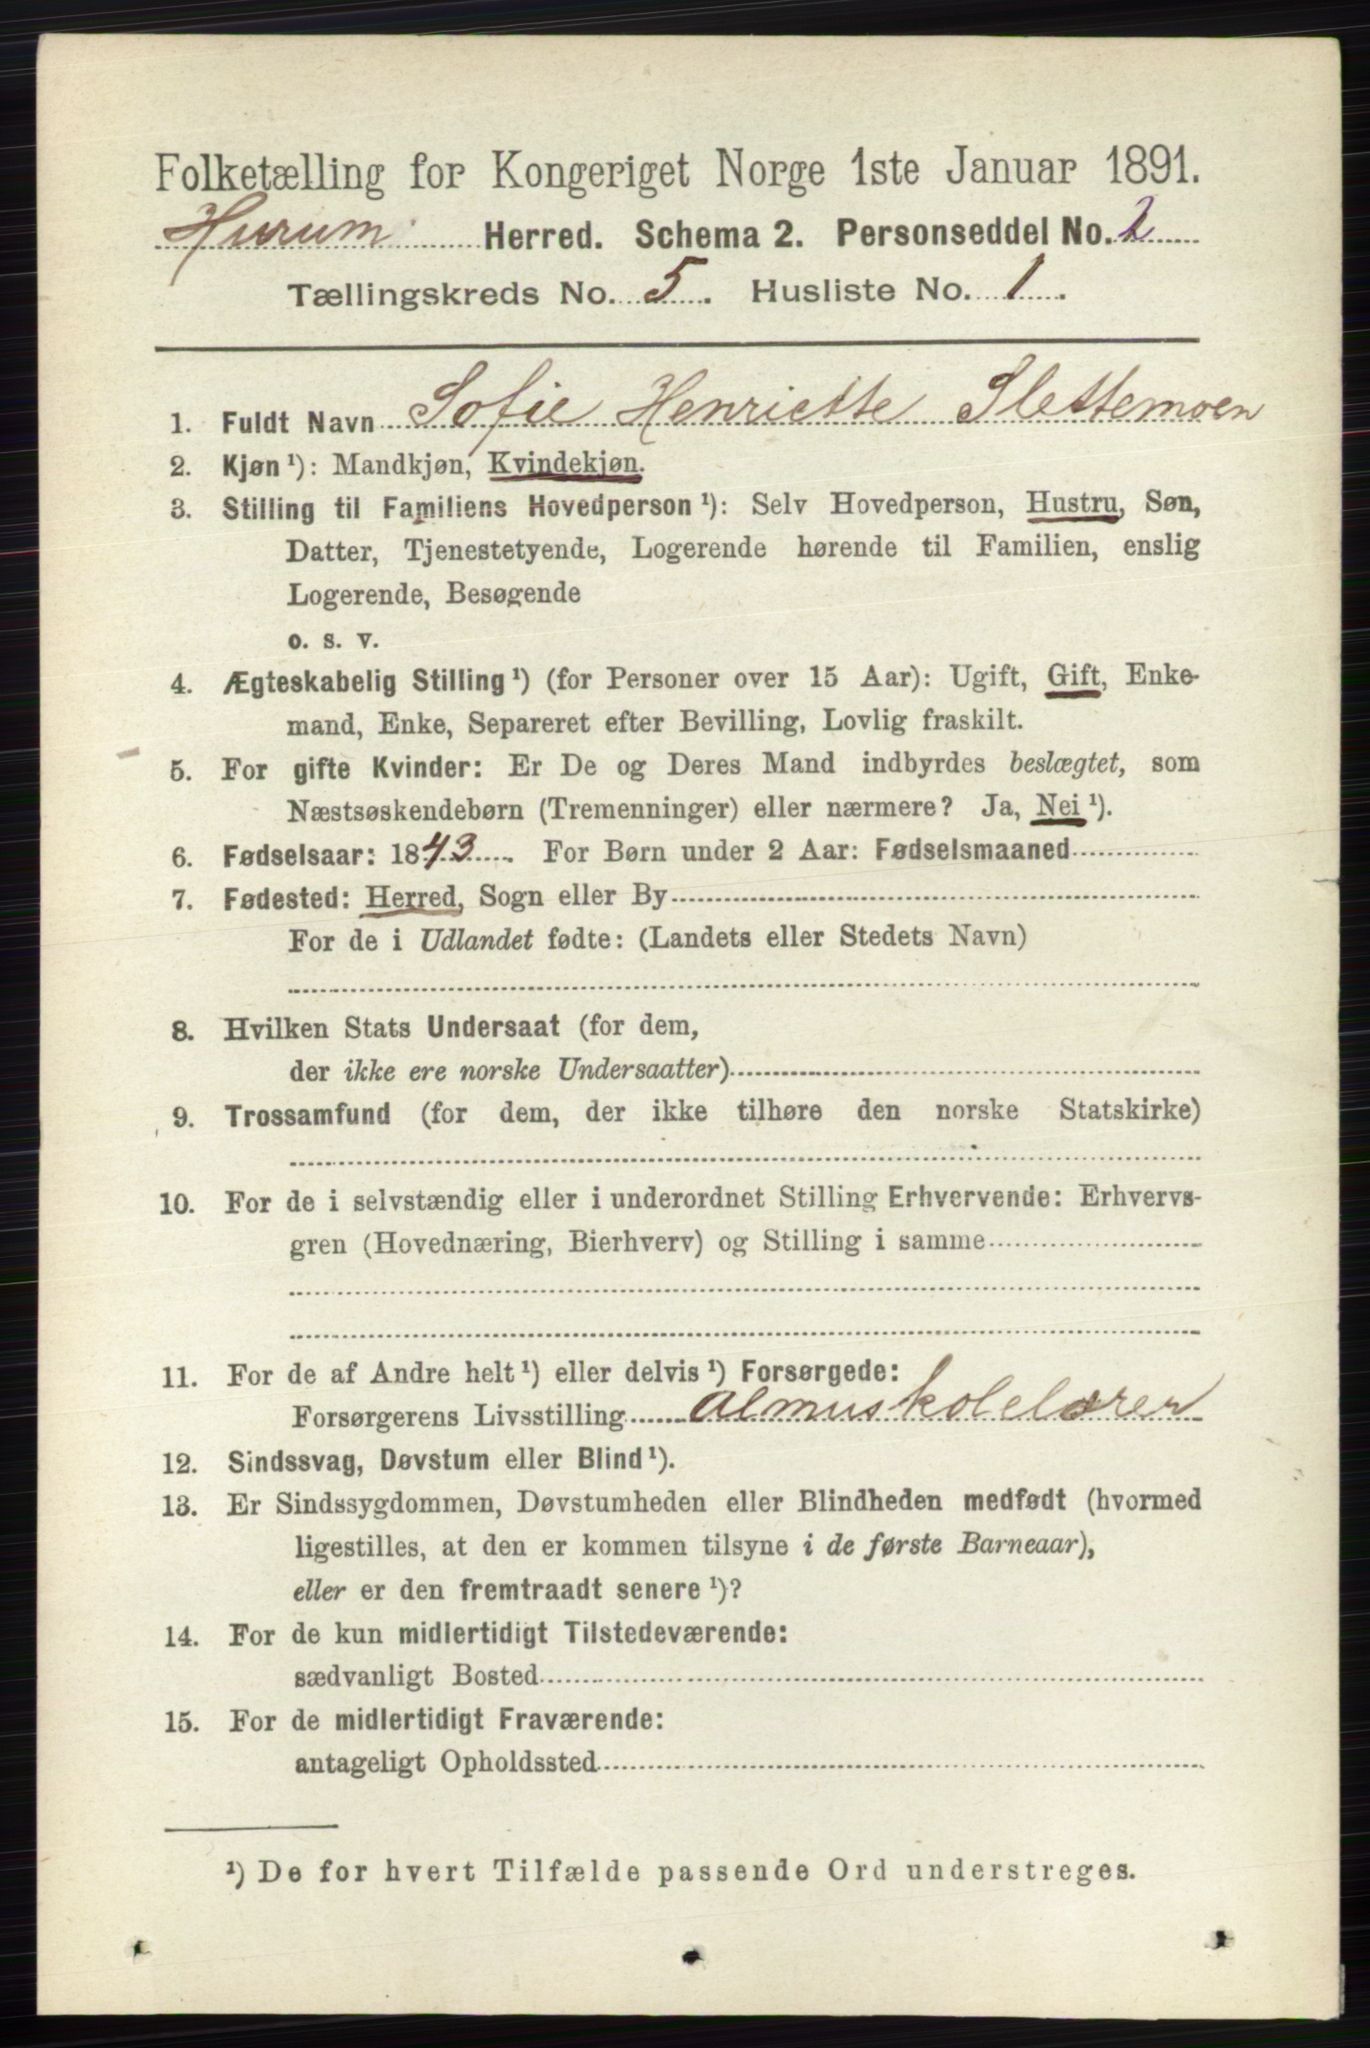 Folketælling for Kongeriget Norge 1ste Januar 1891.
Hurum Herred. Schema 2. Personseddel No. 2
Tællingskreds No. 5. Husliste No. 1.
1. Fuldt Navn Sofie Henriette Slettemoen
2. Kjøn ¹): Mandkjøn, Kvindekjøn.
3. Stilling til Familiens Hovedperson ¹): Selv Hovedperson, Hustru, Søn,
Datter, Tjenestetyende, Logerende hørende til Familien, enslig
Logerende, Besøgende
o. s. v.
4. Ægteskabelig Stilling ¹) (for Personer over 15 Aar): Ugift, Gift, Enke-
mand, Enke, Separeret efter Bevilling, Lovlig fraskilt.
5. For gifte Kvinder: Er De og Deres Mand indbyrdes beslægtet, som
Næstsøskendebørn (Tremenninger) eller nærmere? Ja, Nei ¹).
6. Fødselsaar: 1843. For Børn under 2 Aar: Fødselsmaaned
7. Fødested: Herred, Sogn eller By
For de i Udlandet fødte: (Landets eller Stedets Navn)
8. Hvilken Stats Undersaat (for dem,
der ikke ere norske Undersaatter)
9. Trossamfund (for dem, der ikke tilhøre den norske Statskirke)
10. For de i selvstændig eller i underordnet Stilling Erhvervende: Erhvervs-
gren (Hovednæring, Bierhverv) og Stilling i samme
11. For de af Andre helt ¹) eller delvis ¹) Forsørgede:
Forsørgerens Livsstilling almuskolelærer
12. Sindssvag, Døvstum eller Blind ¹).
13. Er Sindssygdommen, Døvstumheden eller Blindheden medfødt (hvormed
ligestilles, at den er kommen tilsyne i de første Barneaar),
eller er den fremtraadt senere ¹)?
14. For de kun midlertidigt Tilstedeværende:
sædvanligt Bosted
15. For de midlertidigt Fraværende:
antageligt Opholdssted
¹) De for hvert Tilfælde passende Ord understreges.